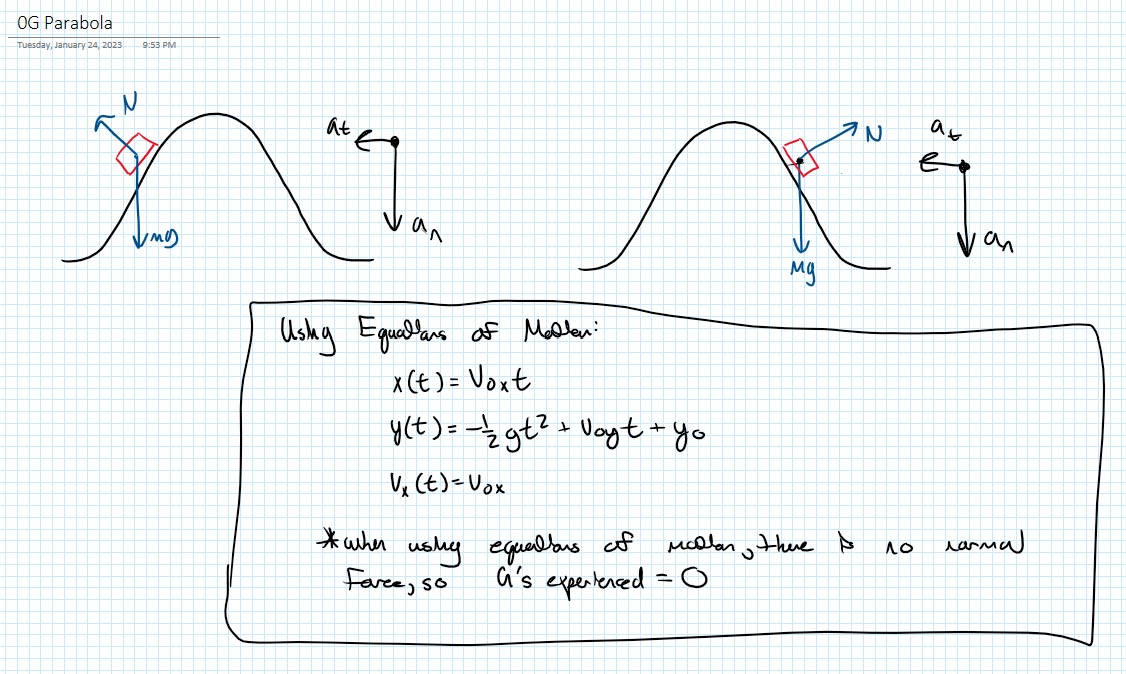 0G Parabola
Tuesday, January 24, 2023 9:53 PM
N
mg
at
an
N
Mg
at
an
Using Equations of Motion:
x(t) = V0xt
y(t) = -1/2 gt² + V0yt + y0
Vx(t) = V0x
*when using equations of motion, there is no normal
Force, so G's experienced = 0